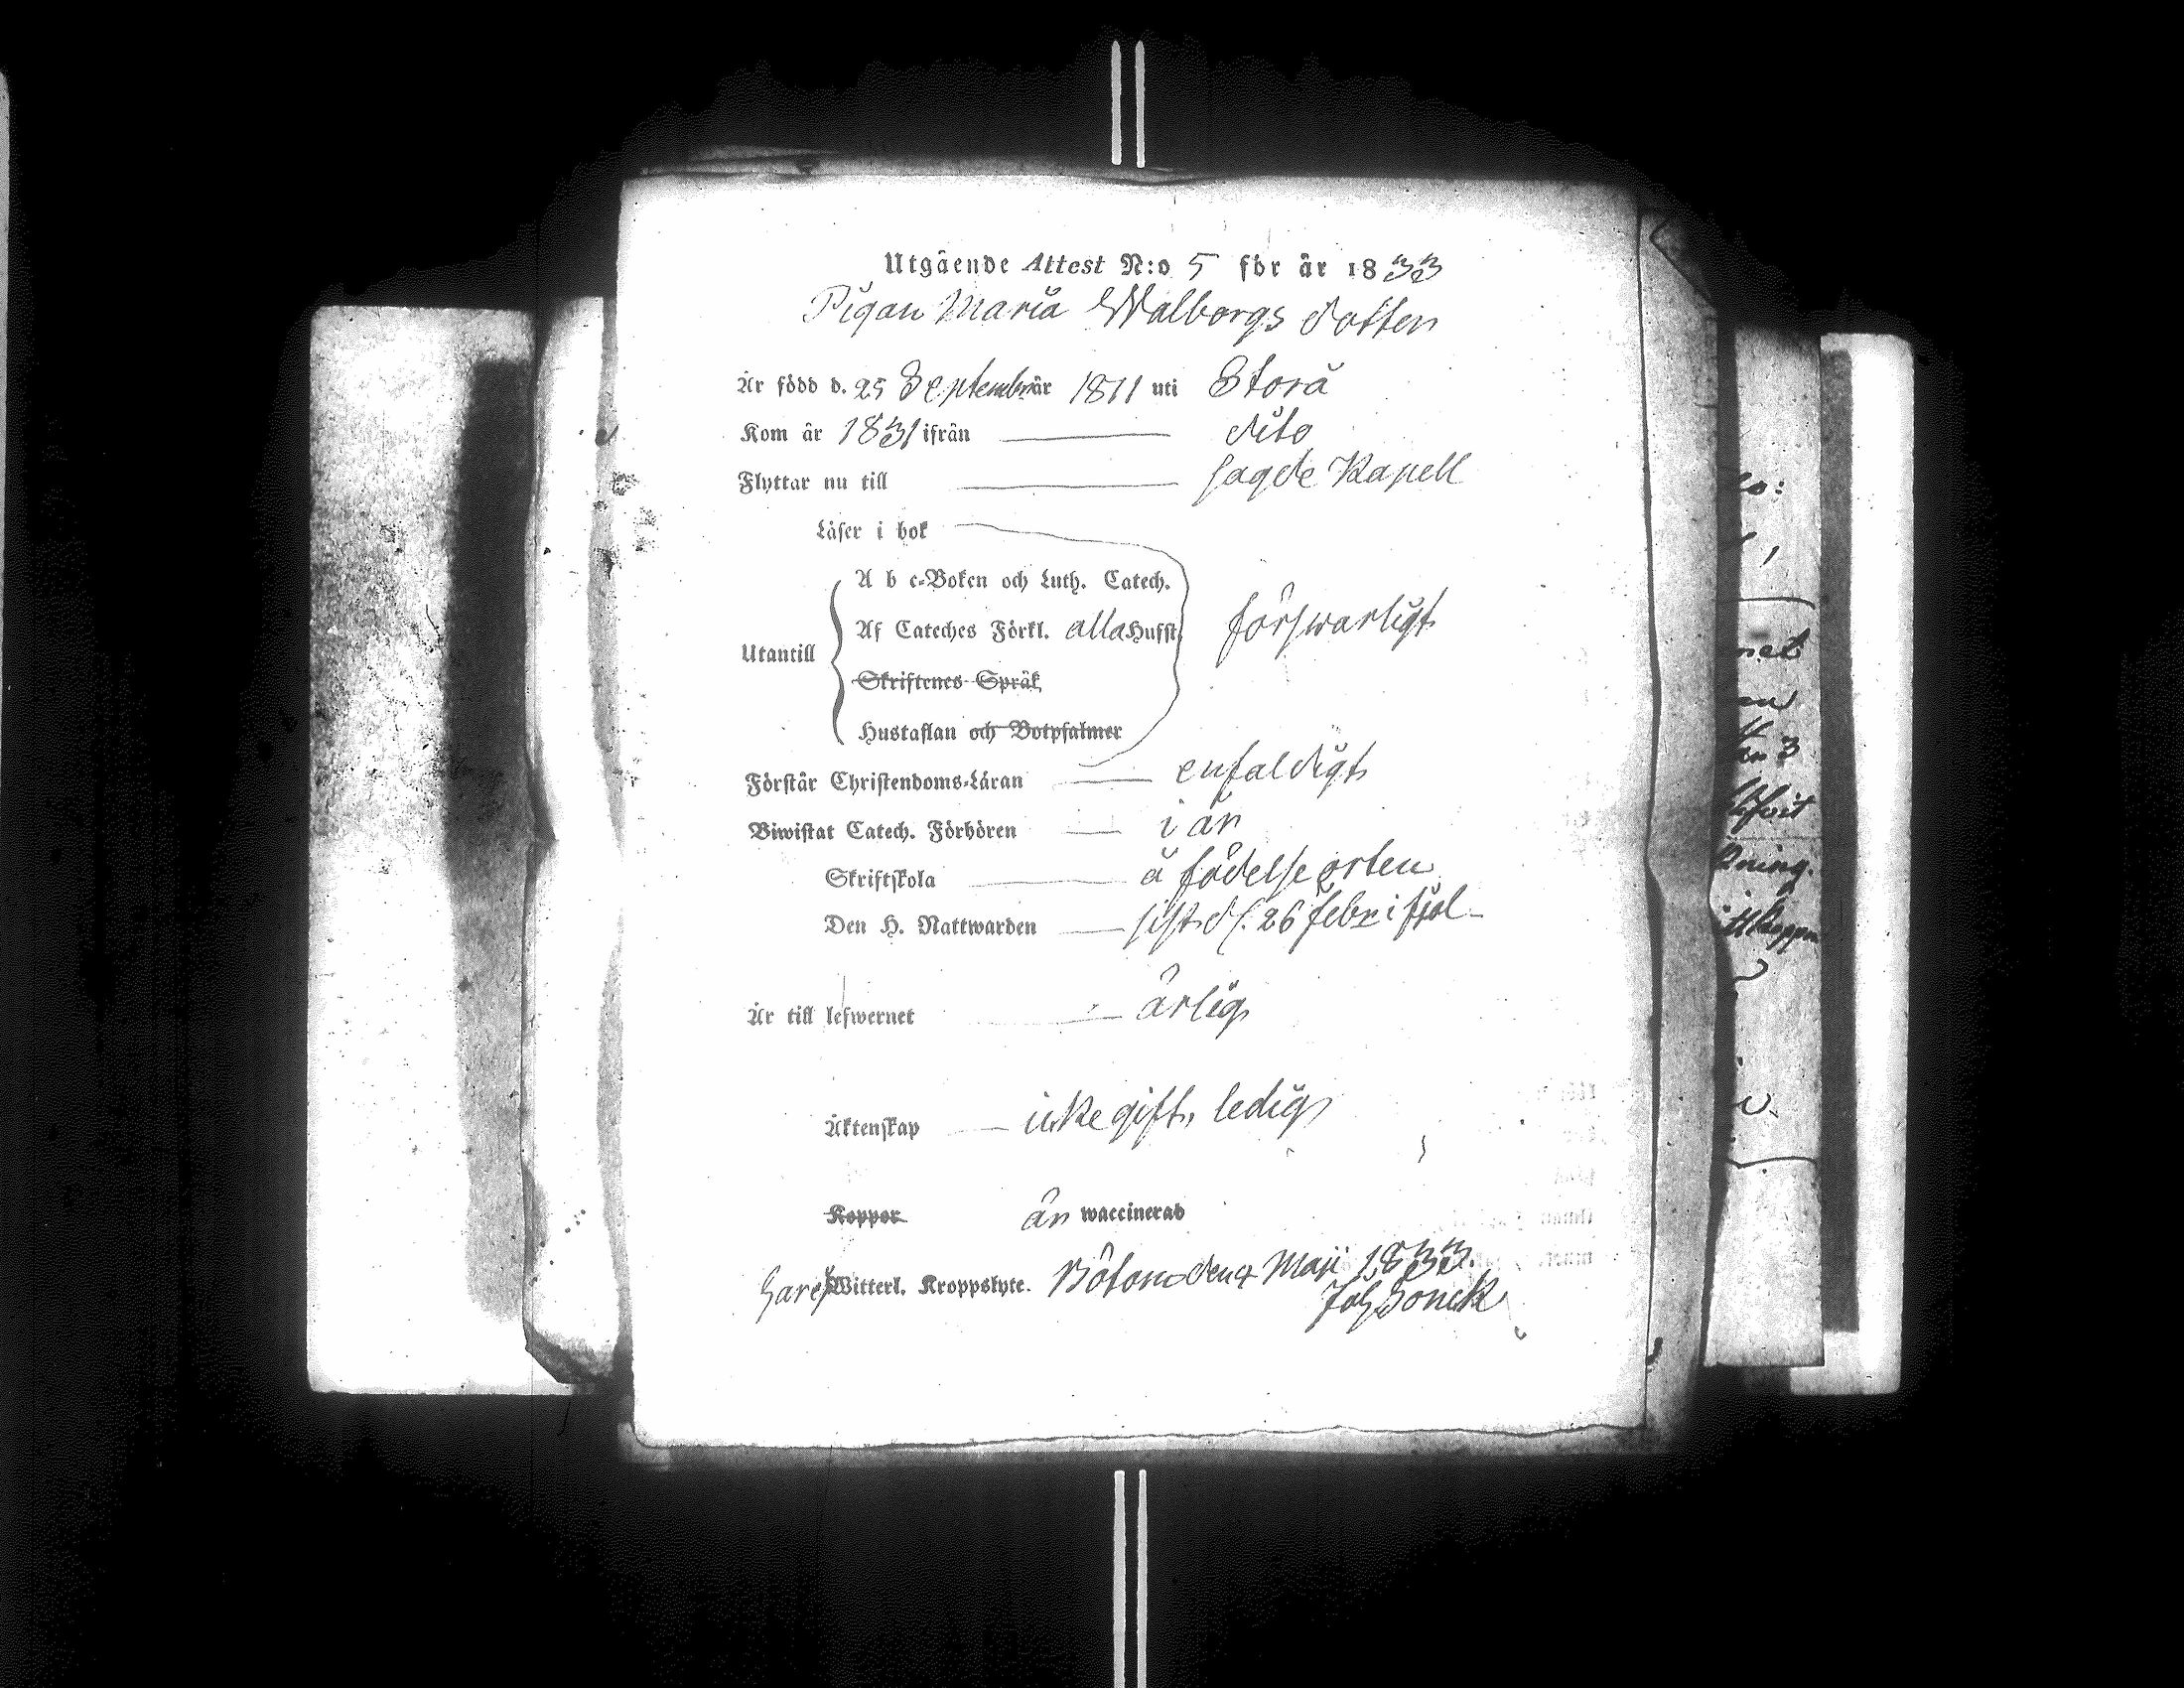 Utgående Attest N:o 5 för år 1833
Pigan Maria Walborgs dotter
År född d. 25 Septembr år 1811 uti Storå
Kom år 1831 ifrån dito
Flyttar nu till sagde Kapell
Läser i bok
A b c-Boken och Luth. Catech.
Af Cateches Förkl. alla Hufst. förswarligt
Utantill
Skriftenes Språk
Hustaflan och Botpsalmer
Förstår Christendoms-Läran enfaldigt
Biwistat Catech. Förhören i år
Skriftskola å födelse orten
Den H. Nattwarden sist d. 26 febr i fjol
Är till lefwernet ärlig
Äktenskap icke gift, ledig
Koppor är waccinerad
Witterl. Kroppslyte. Bötom den 4 Maji 1833.
Joh Sonck